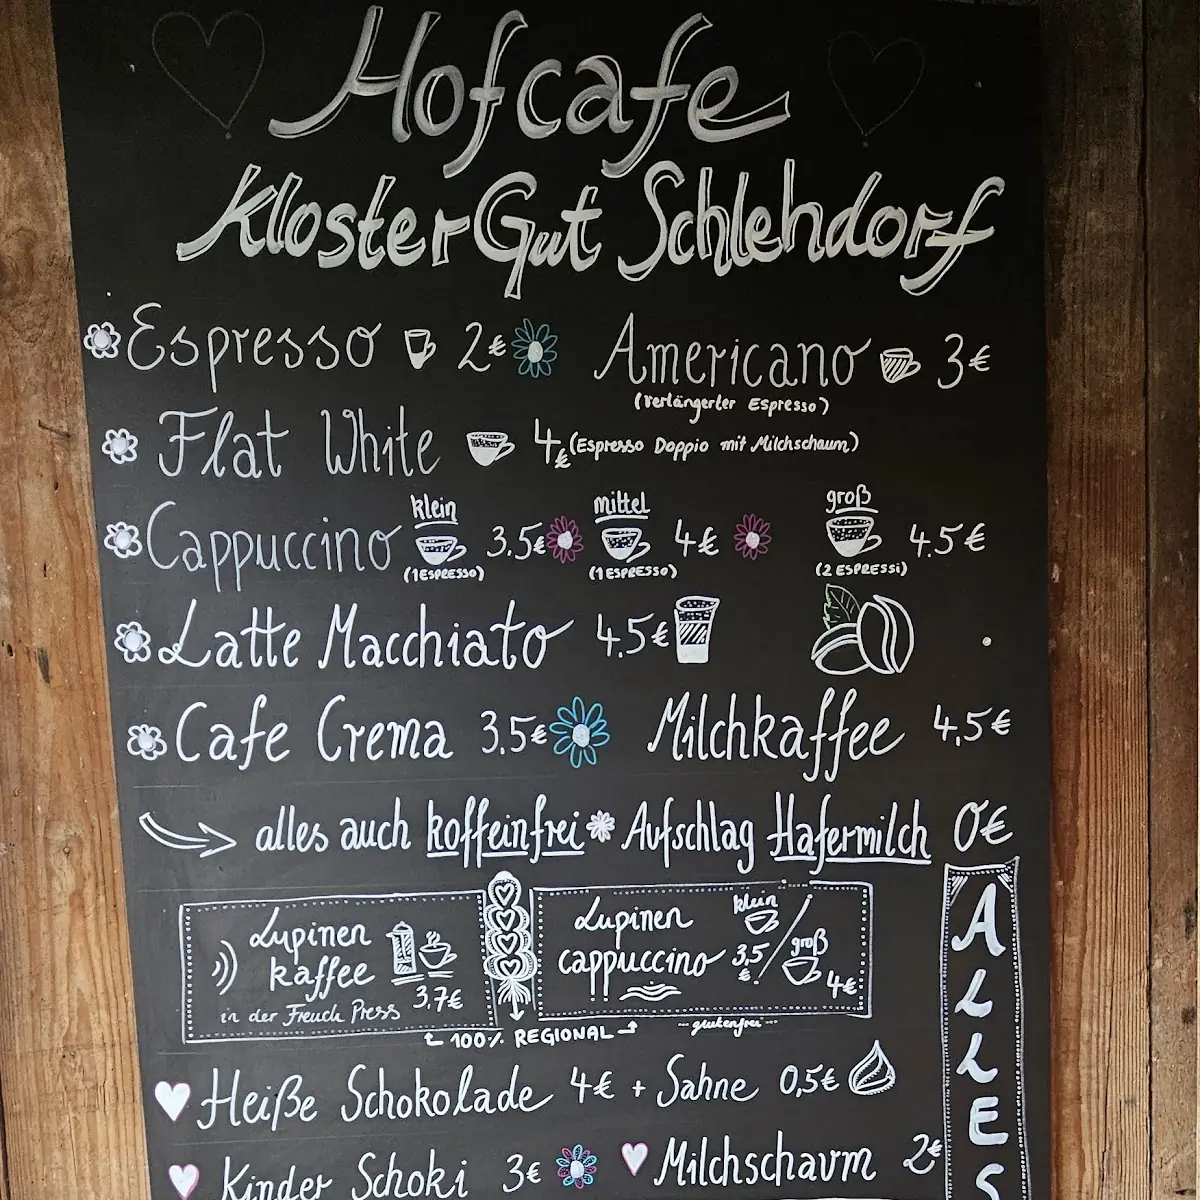 Hofcafe
KlosterGut Schlehdorf
Espresso 2€ Americano 3€
(verlängerter Espresso)
Flat White 4€ (Espresso Doppio mit Milchschaum)
klein mittel groß
Cappuccino 3.5€ 4€ 4.5€
(1 ESPRESSO) (1 ESPRESSO) (2 ESPRESSI)
Latte Macchiato 4.5€
Cafe Crema 3.5€ Milchkaffee 4,5€
alles auch koffeinfrei Aufschlag Hafermilch 0€
Lupinen
kaffee
in der French Press 3,7€
Lupinen
cappuccino
klein
3,5€
groß
4€
100% REGIONAL glutenfrei
Heiße Schokolade 4€ + Sahne 0,5€
Kinder Schoki 3€ Milchschaum 2€
ALLES